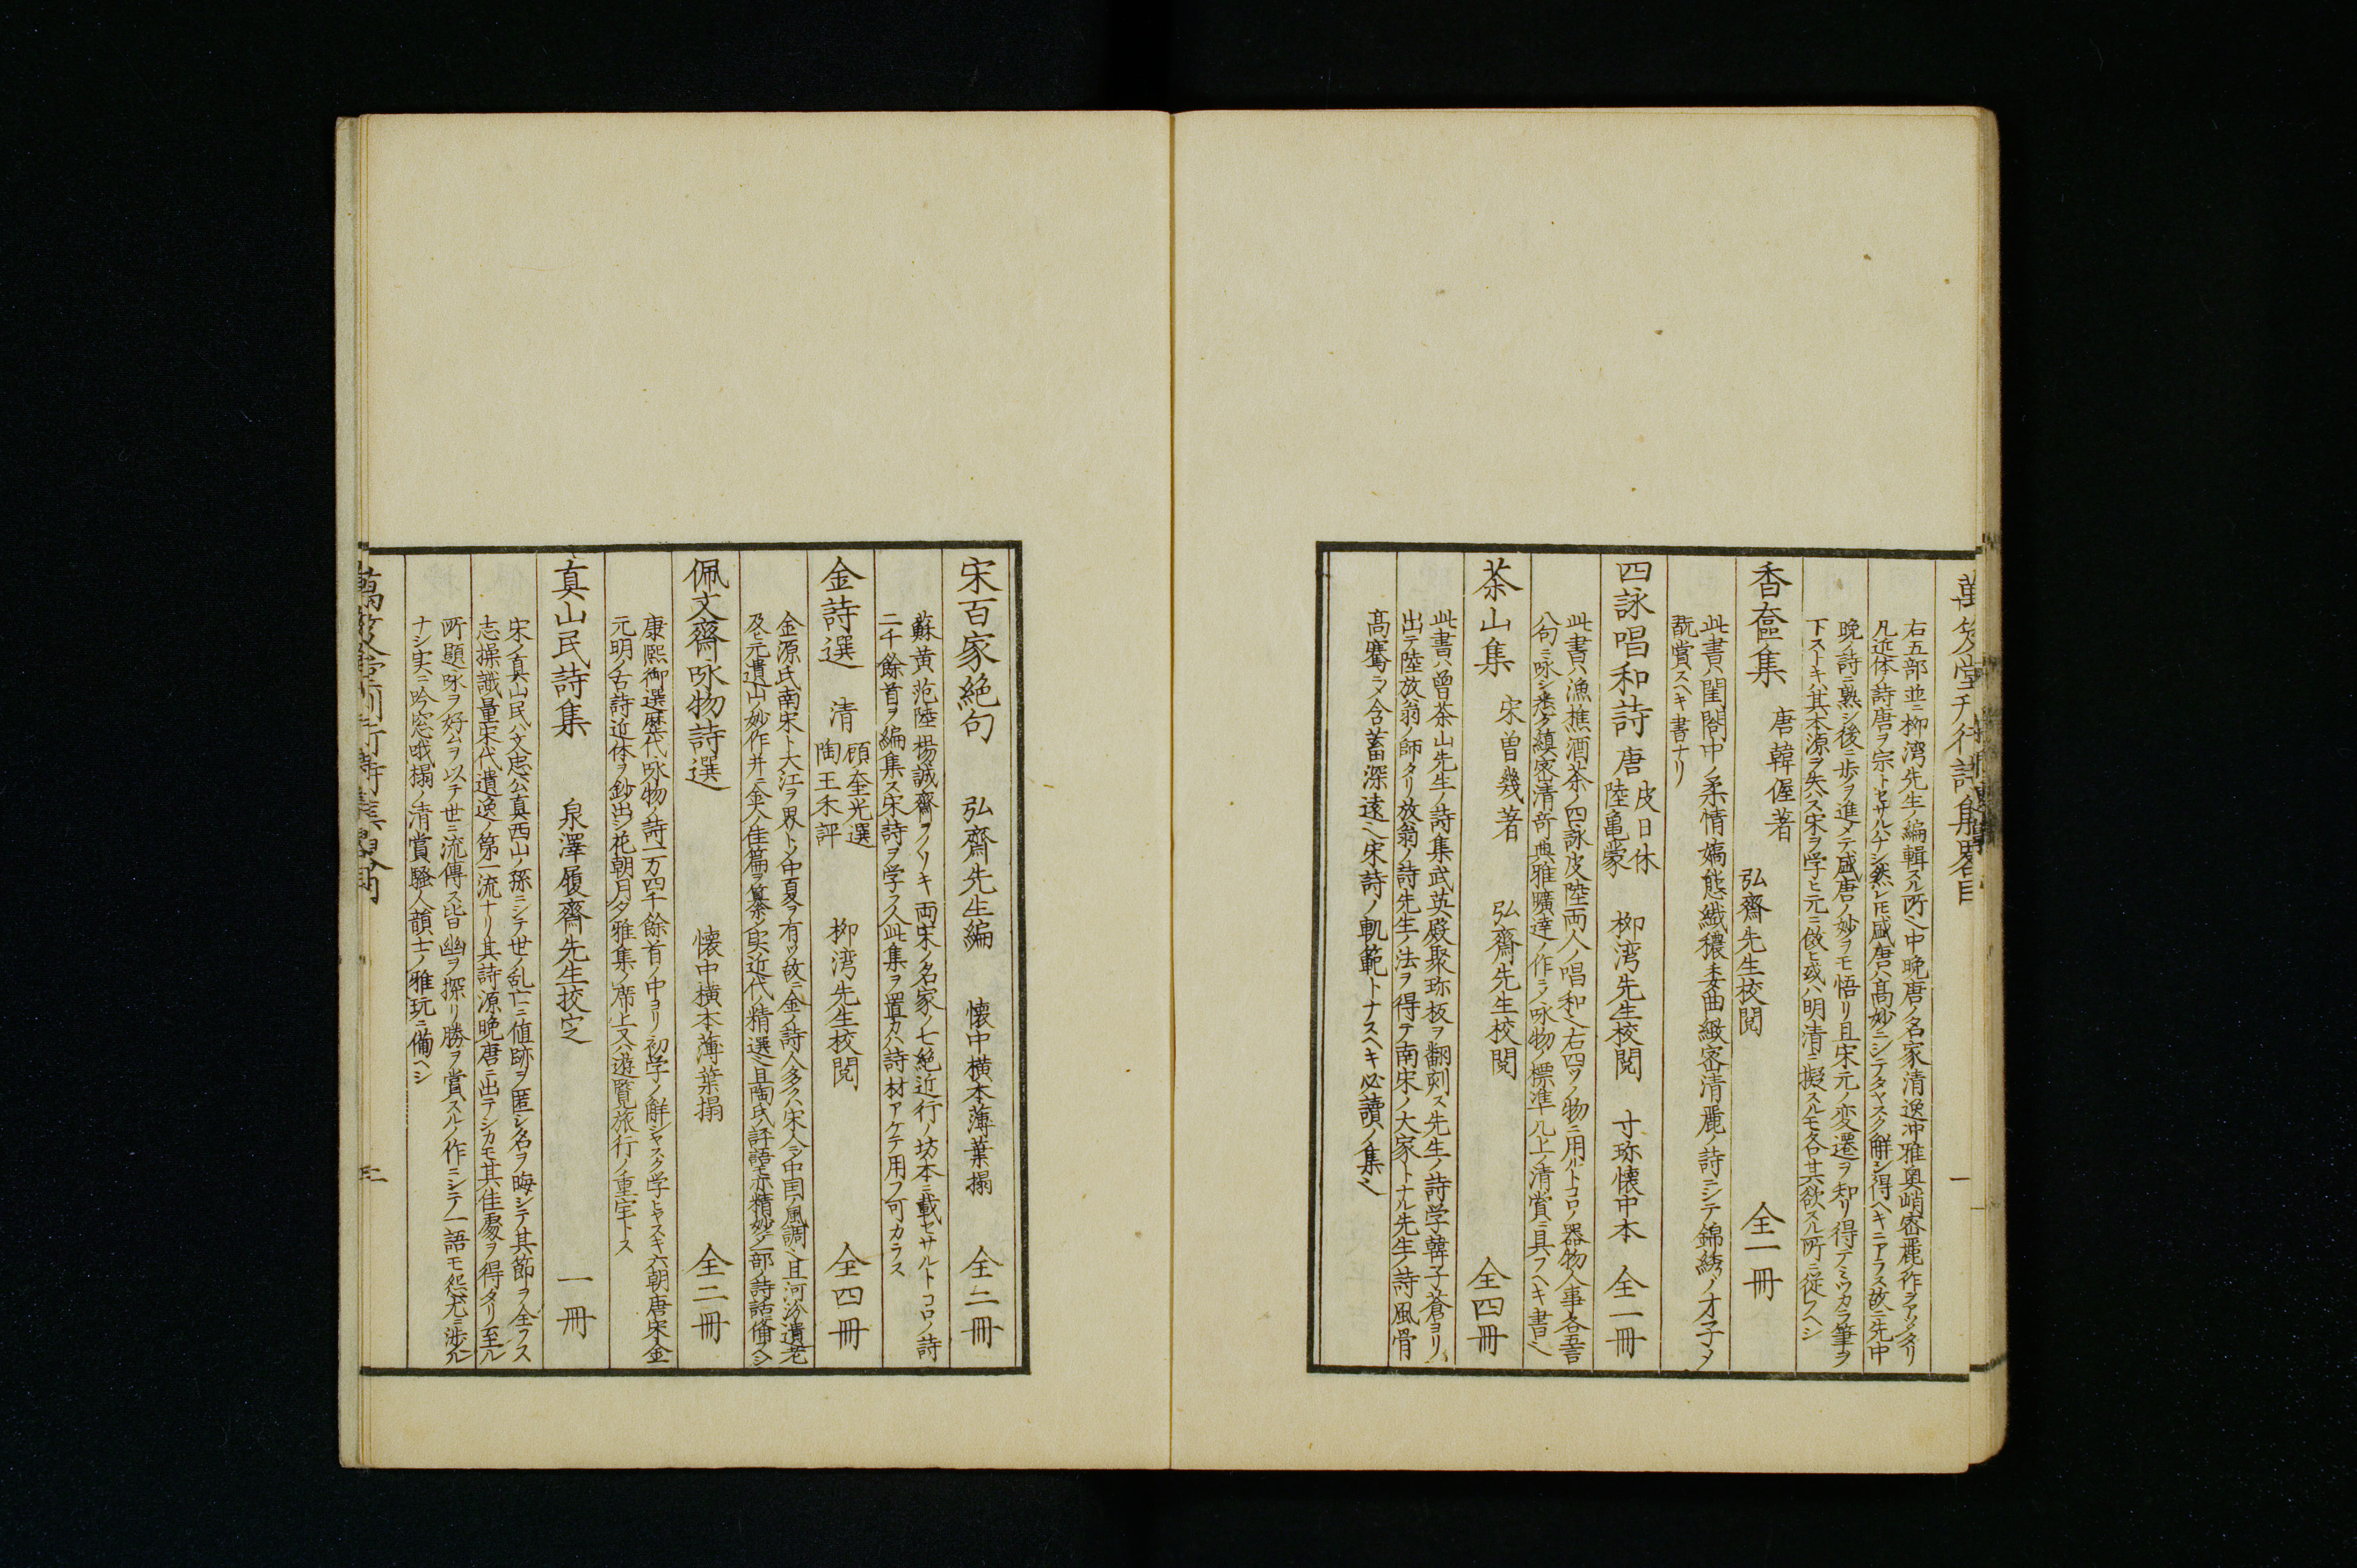 右五部並ニ柳湾先生ノ編輯スル所ニ中晩唐ノ名家清逸冲雅奥峭密麗ノ作ヲアツメタリ
凡近体ノ詩唐ヲ宗トセサルハナシ然レ𪜈盛唐ハ高妙ニシテタヤスク解シ得ヘキニアラス故ニ先中
晩ノ詩ニ熟シ後ニ歩ヲ進メテ盛唐ノ妙ヲモ悟リ且宋元ノ変遷ヲ知リ得テミツカラ筆ヲ
下ストキハ其本源ヲ失ハス宋ヲ学ヒ元ニ倣ヒ或ハ明清ニ擬スルモ各其欲スル所ニ従フヘシ
香奩集 唐韓偓著 弘齋先生校閲 全一冊
此書ハ閨閤中ノ柔情嬌態纎穠委曲緻密清麗ノ詩ニシテ錦綉ノ才子
翫賞スヘキ書ナリ
四詠唱和詩 唐 皮日休 陸亀蒙 柳湾先生校閲 寸珍懐中本 全一冊
此書ハ漁樵酒茶ノ四詠皮陸両人ノ唱和ニ右四ツノ物ニ用ルトコロノ器物人事各五言
八句ニ咏シ悉ク縝密清奇典雅曠達ノ作ニシテ咏物ノ標準几上ノ清賞ニ具フヘキ書ニ
茶山集 宋曽幾著 弘齋先生校閲 全四冊
此書ハ曽茶山先生ノ詩集武英殿聚珍板ヲ翻刻ス先生ノ詩学韓子蒼ヨリ
出テ陸放翁ノ師タリ放翁ノ詩先生ノ法ヲ得テ南宋ノ大家トナル先生ノ詩風骨
高騫ニシテ含蓄深遠ニ宋詩ノ軌範トナスヘキ必讀ノ集ニ
宋百家絶句 弘齋先生編 懐中横本薄葉搨 全二冊
蘇黄范陸楊誠齋ヲノソキ両宋ノ名家ノ七絶近行ノ坊本ニ載セサルトコロノ詩
二千餘首ヲ編集ス宋詩ヲ学フ人此集ヲ置カハ詩材アケテ用フ可カラス
金詩選 清 顧奎光選 陶玉禾評 柳湾先生校閲 全四冊
金源氏南宋ト大江ヲ界トシ中夏ヲ有ツ故ニ金ノ詩人多クハ宋人ニテ中国ノ風調ニ且河汾遺老
及ヒ元遺山ノ妙作并ニ金人ノ佳篇ヲ纂ム実ニ近代ノ精選ニ且陶氏ノ評語モ亦精妙ニ一部ノ詩話ニ備フヘシ
佩文齋咏物詩選 懐中横本薄葉搨 全二冊
康熙御選歴代咏物ノ詩一万四千餘首ノ中ヨリ初学ノ解シヤスク学ヒヤスキ六朝唐宋金
元明ノ古詩近体ヲ鈔出シ花朝月夕雅集ノ席上又ハ遊覧旅行ノ重宝トス
真山民詩集 泉澤履齋先生挍定 一冊
宋ノ真山民ハ文忠公真西山ノ孫ニシテ世ノ乱亡ニ値跡ヲ匿レ名ヲ晦シテ其節ヲ全フス
志操識量宋代遺逸ノ第一流ナリ其詩源晩唐ニ出テシカモ其佳處ヲ得タリ至ル
所題咏ヲ好ムヲ以テ世ニ流傳ス皆幽ヲ探リ勝ヲ賞スルノ作ニシテ一語モ怨尤ニ渉ル
ナシ実ニ吟窓哦榻ノ清賞騒人韻士ノ雅玩ニ備ヘシ
二